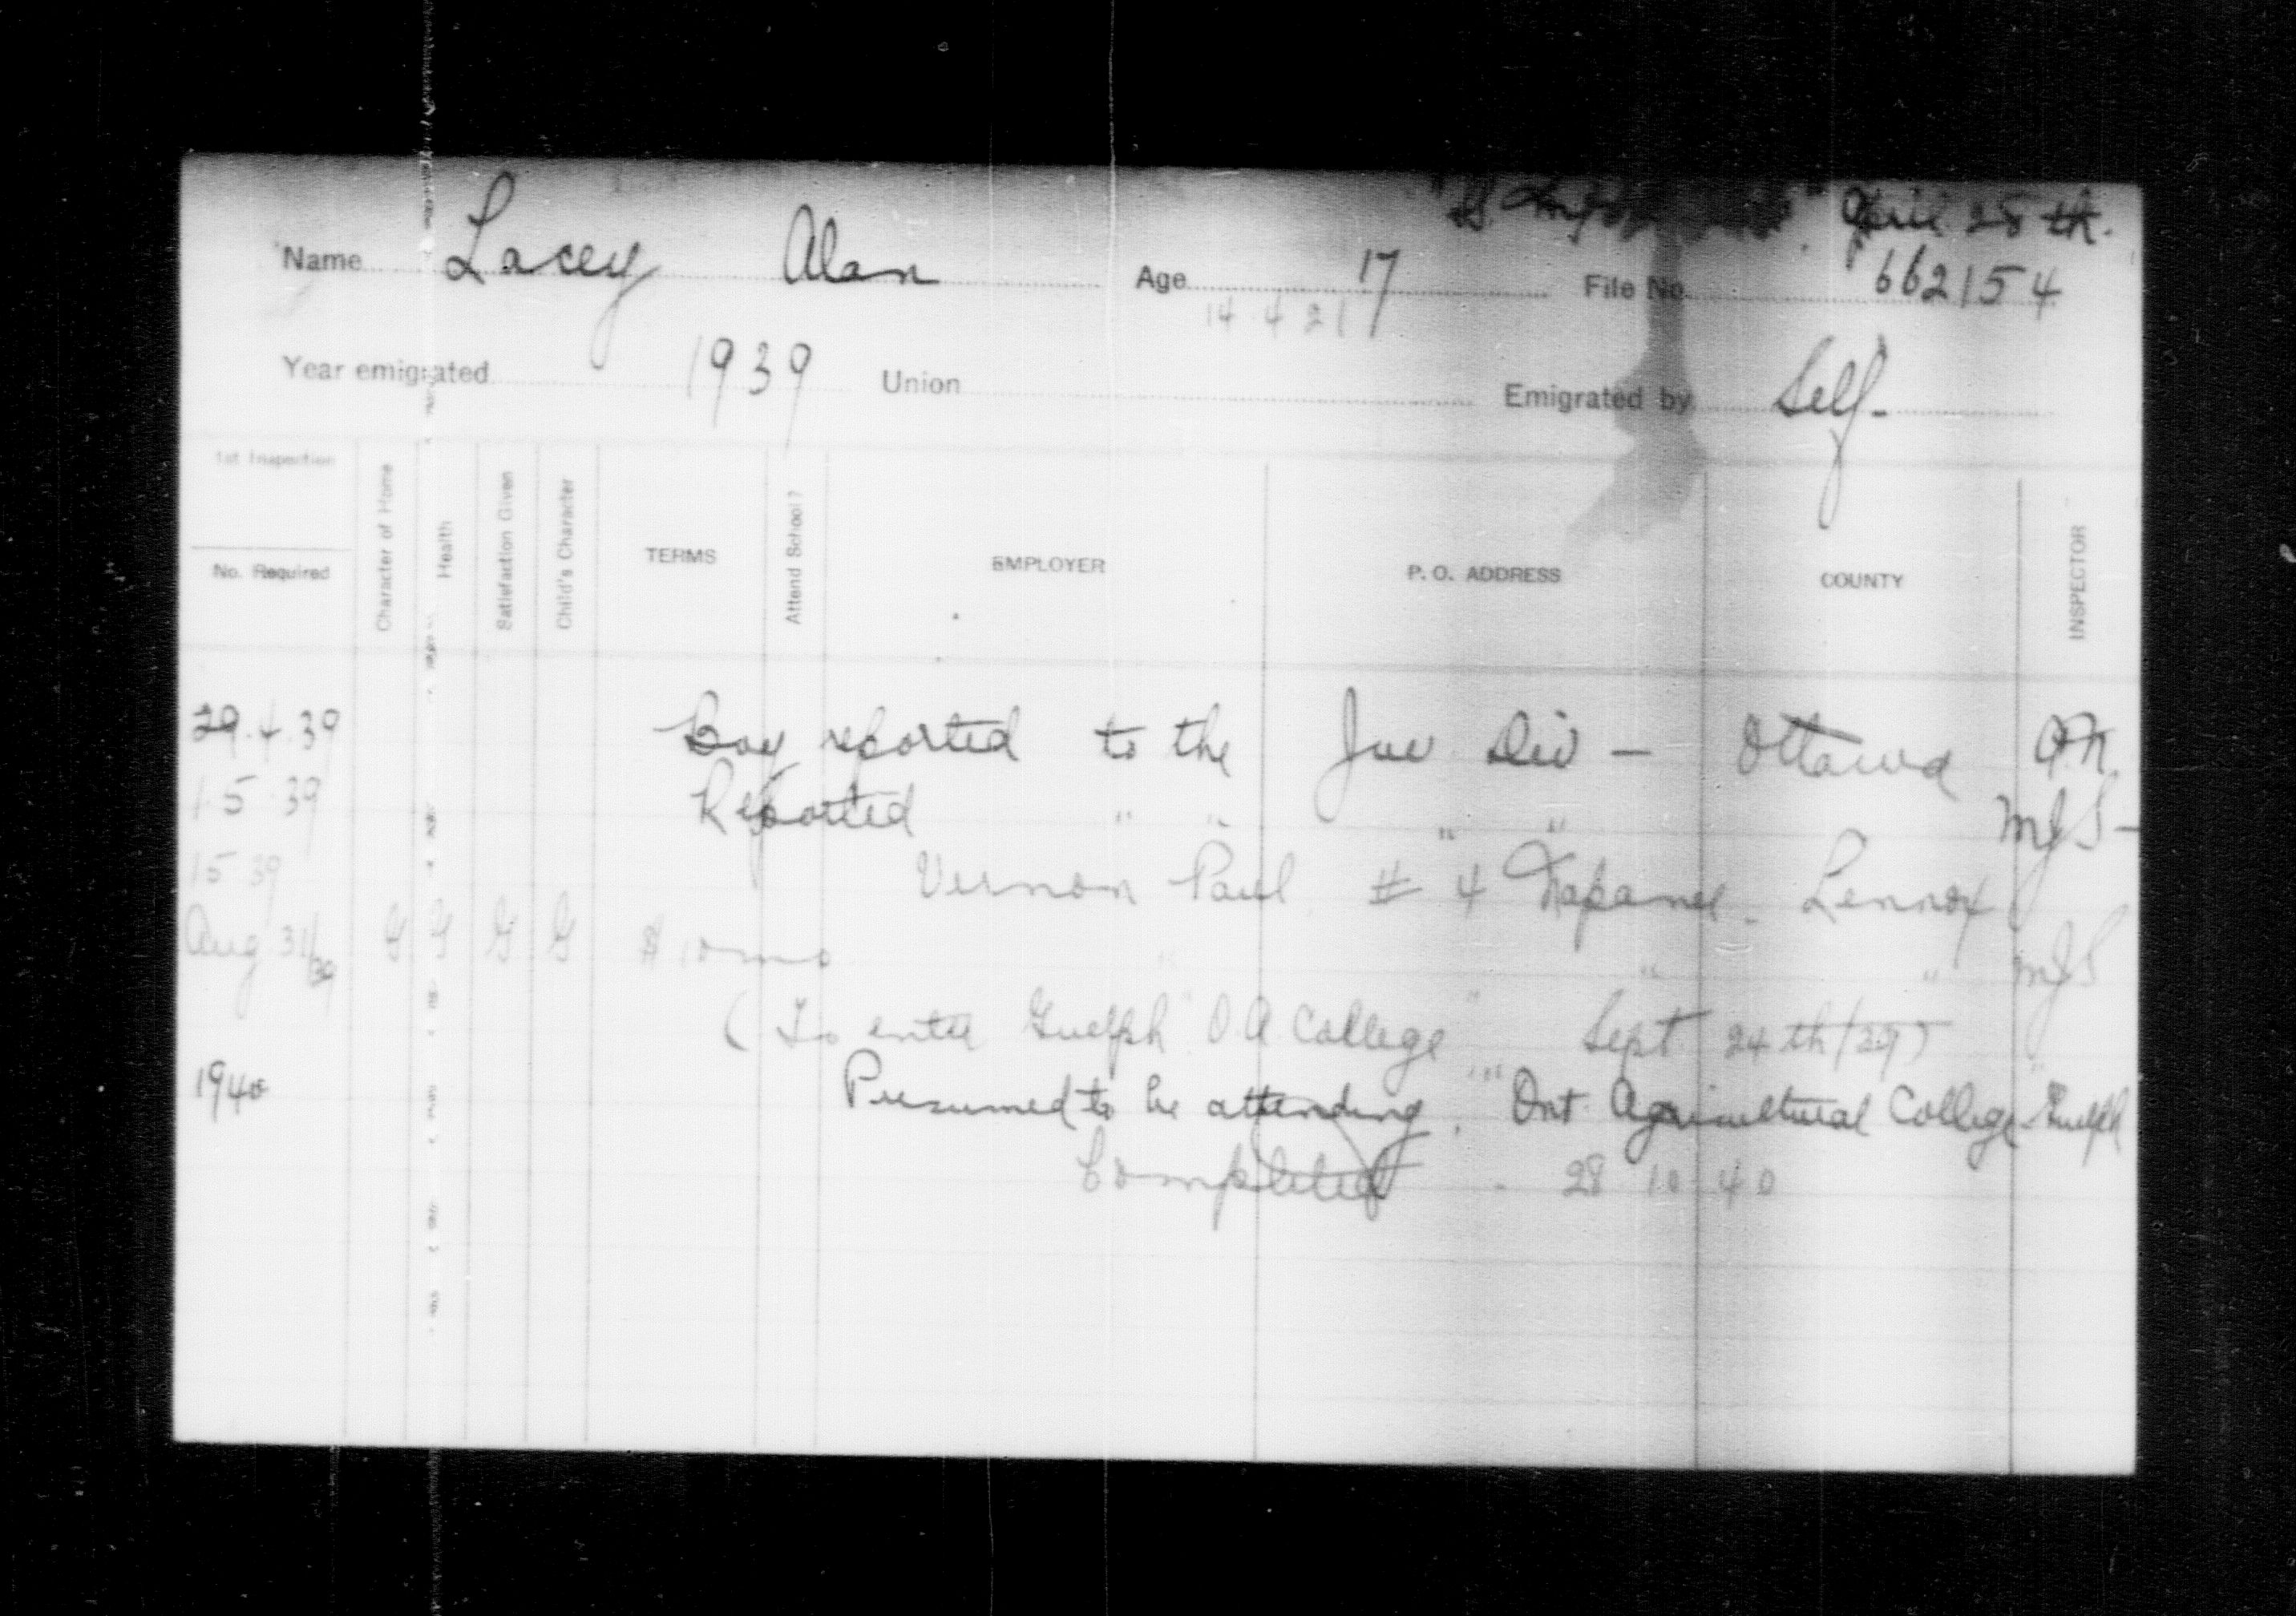 April 28th.
Name Lacey Alan Age 17 File No. 662154
14 4 21
Year emigrated 1939 Union Emigrated by Self-
1st Inspection
No. Required
Character of Home
Health
Satisfaction Given
Child's Character
TERMS
Attend School?
EMPLOYER
P. O. ADDRESS
COUNTY
INSPECTOR
29.4.39 Boy reported to the Juv Div - Ottawa
1.5.39 Reported " " " " MJS-
1 5 39 Vernon Paul # 4 Napanee. Lennox
Aug 31/39 G G G G $10 mo " " " MJS
(To enter Guelph "O.A. College" Sept. 24th/39)
1940 Presumed to be attending. "Ont Agricultural College-Guelph"
Completed - 28 10 40